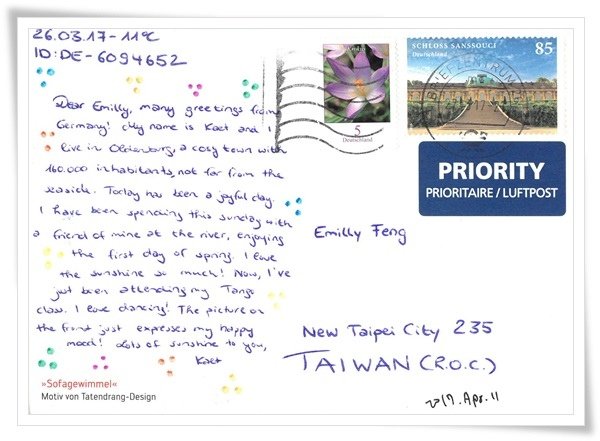 26.03.17 - 11°C
ID: DE-6094652
Dear Emilly, many greetings from
Germany! My name is Kaet and I
live in Oldenburg, a cosy town with
160.000 inhabitants, not far from the
seaside. Today has been a joyful day.
I have been spending this sunday with
a friend of mine at the river, enjoying
the first day of spring. I love
the sunshine so much! Now, I've
just been attending my Tango
class. I love dancing! The picture on
the front just expresses my happy
mood! Lots of sunshine to you,
Kaet
»Sofagewimmel«
Motiv von Tatendrang-Design
5
Deutschland
SCHLOSS SANSSOUCI
Deutschland
85
PRIORITY
PRIORITAIRE / LUFTPOST
Emilly Feng
New Taipei City 235
TAIWAN (R.O.C.)
2017. Apr. 11